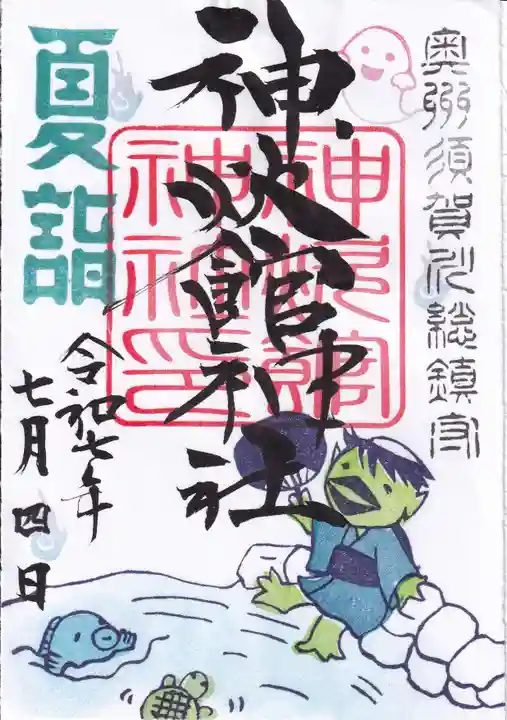 奥州須賀川総鎮守
神炊館神社
神炊館
神社印
夏詣
令和七年
七月四日